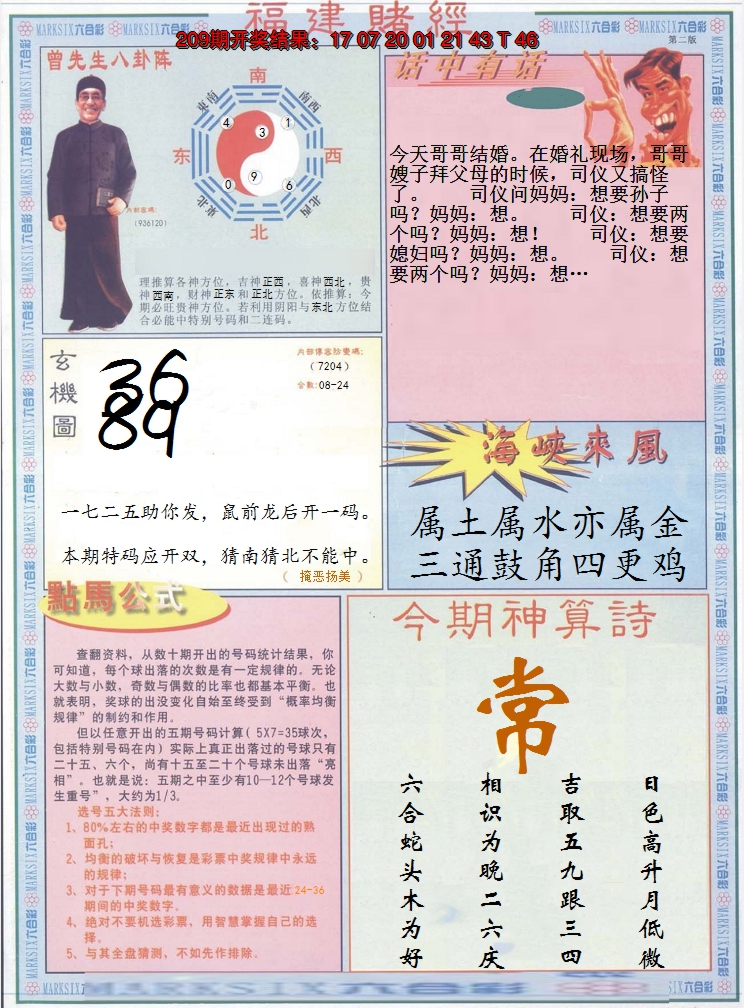 福建賭經
209期开奖结果：17 07 20 01 21 43 T 46
MARKSIX六合彩 MARKSIX六合彩 MARKSIX六合彩 MARKSIX六合彩
第二版
曾先生八卦阵
南
东南
南西
4 3 1
东
西
0 9 6
東北
北西
北
内部密碼:
(936120)
理推算各神方位，吉神正西，喜神西北，贵
神西南，财神正东和正北方位。依推算：今
期必旺贵神方位。若利用阴阳与东北方位结
合必能中特别号码和二连码。
话中有话
今天哥哥结婚。在婚礼现场，哥哥
嫂子拜父母的时候，司仪又搞怪
了。 司仪问妈妈：想要孙子
吗？妈妈：想。 司仪：想要两
个吗？妈妈：想！ 司仪：想要
媳妇吗？妈妈：想。 司仪：想
要两个吗？妈妈：想…
玄機圖
36
89
（7204）
合数:08-24
一七二五助你发，鼠前龙后开一码。
本期特码应开双，猜南猜北不能中。
（ 掩恶扬美 ）
海峡來風
属土属水亦属金
三通鼓角四更鸡
點馬公式
查翻资料，从数十期开出的号码统计结果，你
可知道，每个球出落的次数是有一定规律的。无论
大数与小数，奇数与偶数的比率也都基本平衡。也
就表明，奖球的出没变化自始至终受到“概率均衡
规律”的制约和作用。
但以任意开出的五期号码计算（5X7=35球次，
包括特别号码在内）实际上真正出落过的号球只有
二十五、六个，尚有十五至二十个号球未出落“亮
相”。也就是说：五期之中至少有10—12个号球发
生重号”，大约为1/3。
选号五大法则：
1、80%左右的中奖数字都是最近出现过的熟
面孔；
2、均衡的破坏与恢复是彩票中奖规律中永远
的规律；
3、对于下期号码最有意义的数据是最近24-36
期间的中奖数字。
4、绝对不要机选彩票，用智慧掌握自己的选
择。
5、与其全盘猜测，不如先作排除。
今期神算詩
常
日色高升月低微
吉取五九跟三四
相识为晚二六庆
六合蛇头木为好